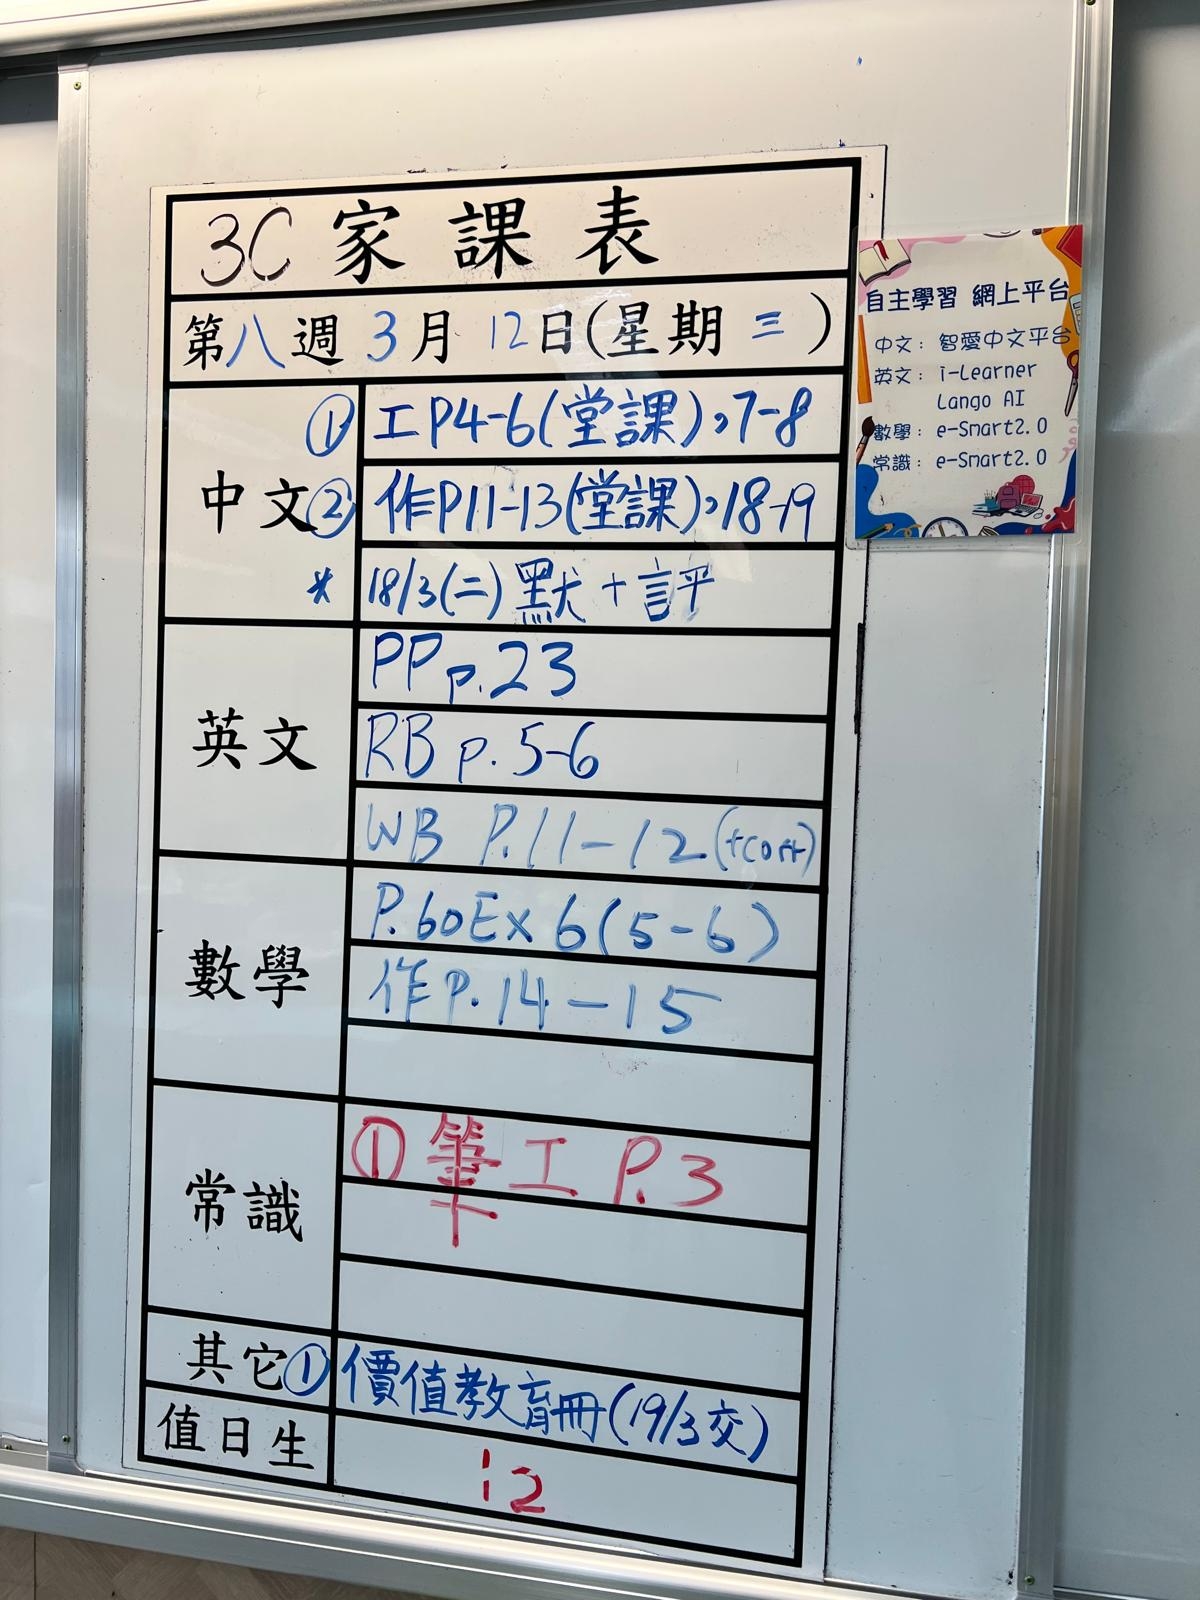 3C 家課表
第八週 3月 12日(星期 三)
中文
① 工 P4-6(堂課),7-8
② 作P11-13(堂課),18-19
* 18/3(二) 默 + 評
英文
PP p.23
RB p. 5-6
WB P.11-12 (+corr)
數學
P.60 Ex 6 (5-6)
作 P.14-15
常識
① 筆 工 P.3
其它
① 價值教育冊(19/3交)
值日生
12
自主學習 網上平台
中文: 智愛中文平台
英文: i-Learner
Lango AI
數學: e-Smart2.0
常識: e-Smart2.0